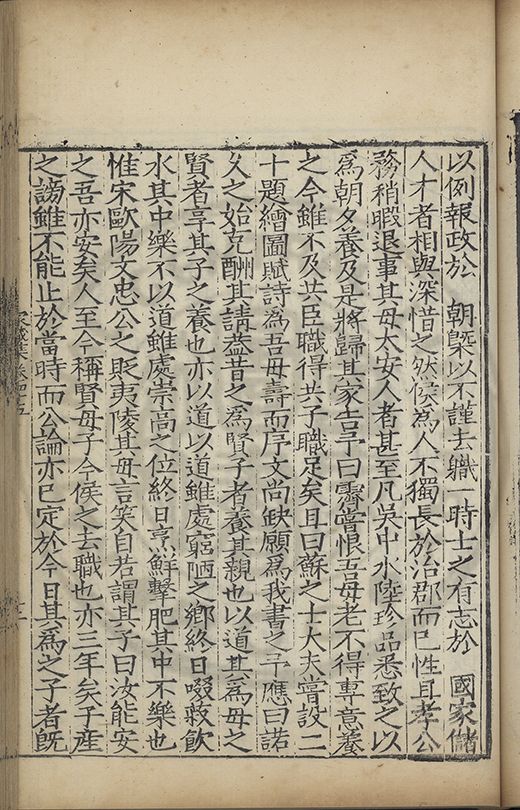 以例報政於　朝槩以不謹去職一時士之有志於　國家儲
人才者相與深惜之然侯為人不獨長於治郡而已性且孝公
務稍暇退事其母太安人者甚至凡吳中水陸珍品悉致之以
為朝夕養及是將歸其家告予曰霽嘗恨吾母老不得專意養
之今雖不及共臣職得共子職足矣且曰蘇之士大夫嘗設二
十題繪圖賦詩為吾母壽而序文尚缺願為我書之予應曰諾
久之始克酬其請蓋昔之為賢子者養其親也以道其為母之
賢者享其子之養也亦以道以道雖處窮陋之鄉終日啜菽飲
水其中樂不以道雖處崇高之位終日烹鮮擊肥其中不樂也
惟宋歐陽文忠公之貶夷陵其母言笑自若謂其子曰汝能安
之吾亦安矣人至今稱賢母子今侯之去職也亦三年矣子產
之謗雖不能止於當時而公論亦已定於今日其為之子者既